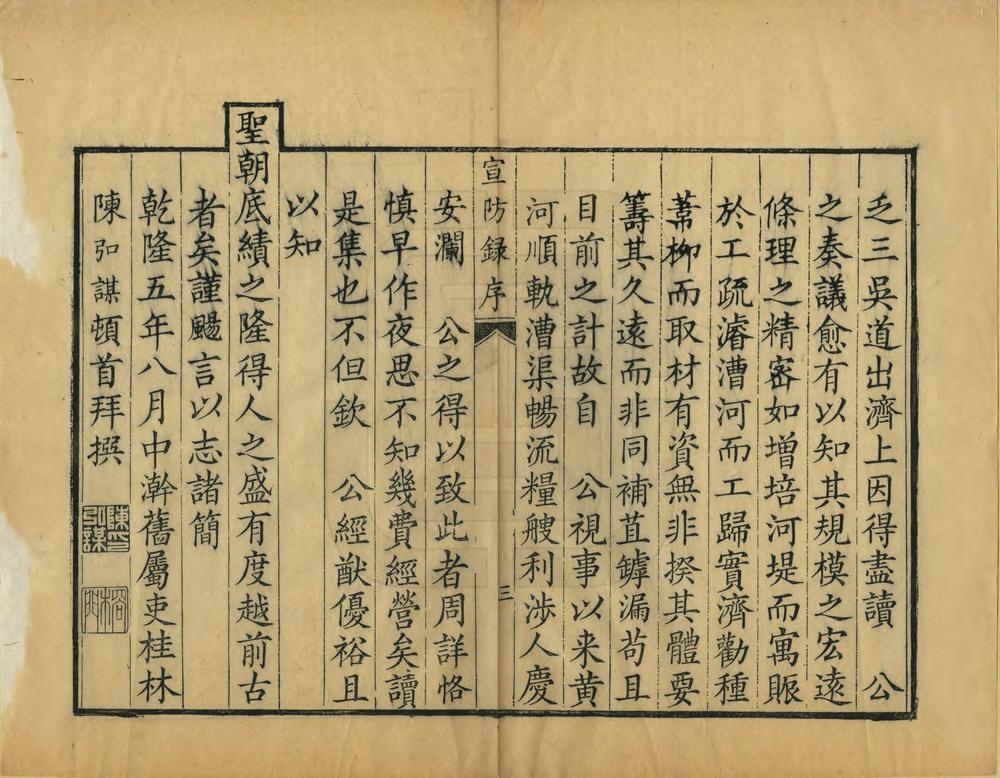 之三吳道出濟上因得盡讀　公
之奏議愈有以知其規模之宏遠
條理之精密如增培河堤而寓賑
於工疏濬漕河而工歸實濟勸種
葦柳而取材有資無非揆其體要
籌其久遠而非同補苴罅漏苟且
目前之計故自　公視事以来黄
河順軌漕渠暢流糧艘利涉人慶
宣防録序
三
安瀾　公之得以致此者周詳恪
慎早作夜思不知幾費經營矣讀
是集也不但欽　公經猷優裕且
以知
聖朝底績之隆得人之盛有度越前古
者矣謹颺言以志諸簡
乾隆五年八月中澣舊屬吏桂林
陳弘謀頓首拜撰
陳弘謀印